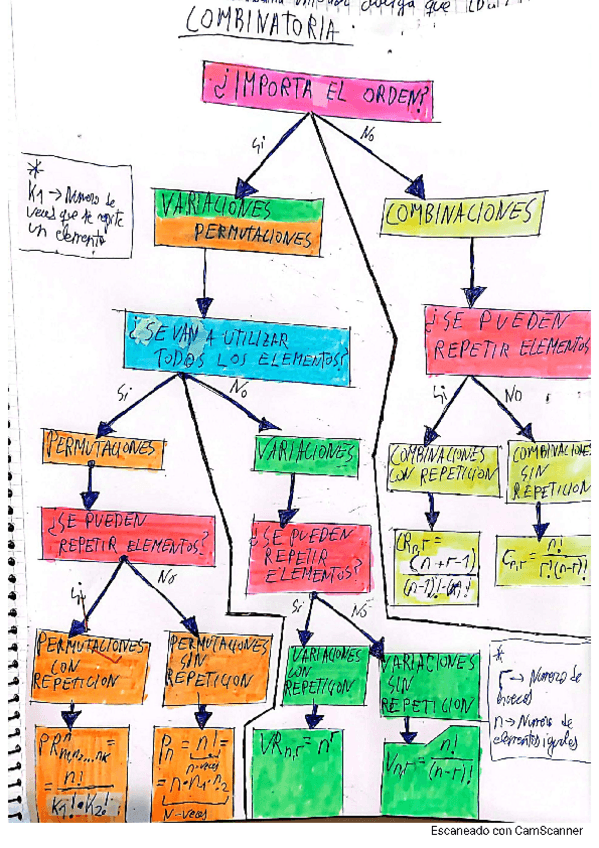 COMBINATORIA
¿IMPORTA EL ORDEN?
Si
No
*
K1 → Número de
veces que se repite
un elemento
VARIACIONES
PERMUTACIONES
COMBINACIONES
¿SE VAN A UTILIZAR
TODOS LOS ELEMENTOS?
¿SE PUEDEN
REPETIR ELEMENTOS
Si
No
Si
NO
PERMUTACIONES
VARIACIONES
COMBINACIONES
CON REPETICION
COMBINACIONES
SIN
REPETICION
¿SE PUEDEN
REPETIR ELEMENTOS?
¿SE PUEDEN
REPETIR
ELEMENTOS?
CRn,r =
(n+r-1)
Cn,r = n!
r!(n-r)!
Si
No
Si
No
PERMUTACIONES
CON
REPETICION
PERMUTACIONES
SIN
REPETICION
VARIACIONES
CON
REPETICION
VARIACIONES
SIN
REPETICION
*
r → Número de
huecos
n → Número de
elementos iguales
=
= n!
K1! · K2!
Pn = n! =
n-veces
= n · n1 · n2
N-veces
VRn,r = n^r
Vn,r = n!
(n-r)!
Escaneado con CamScanner